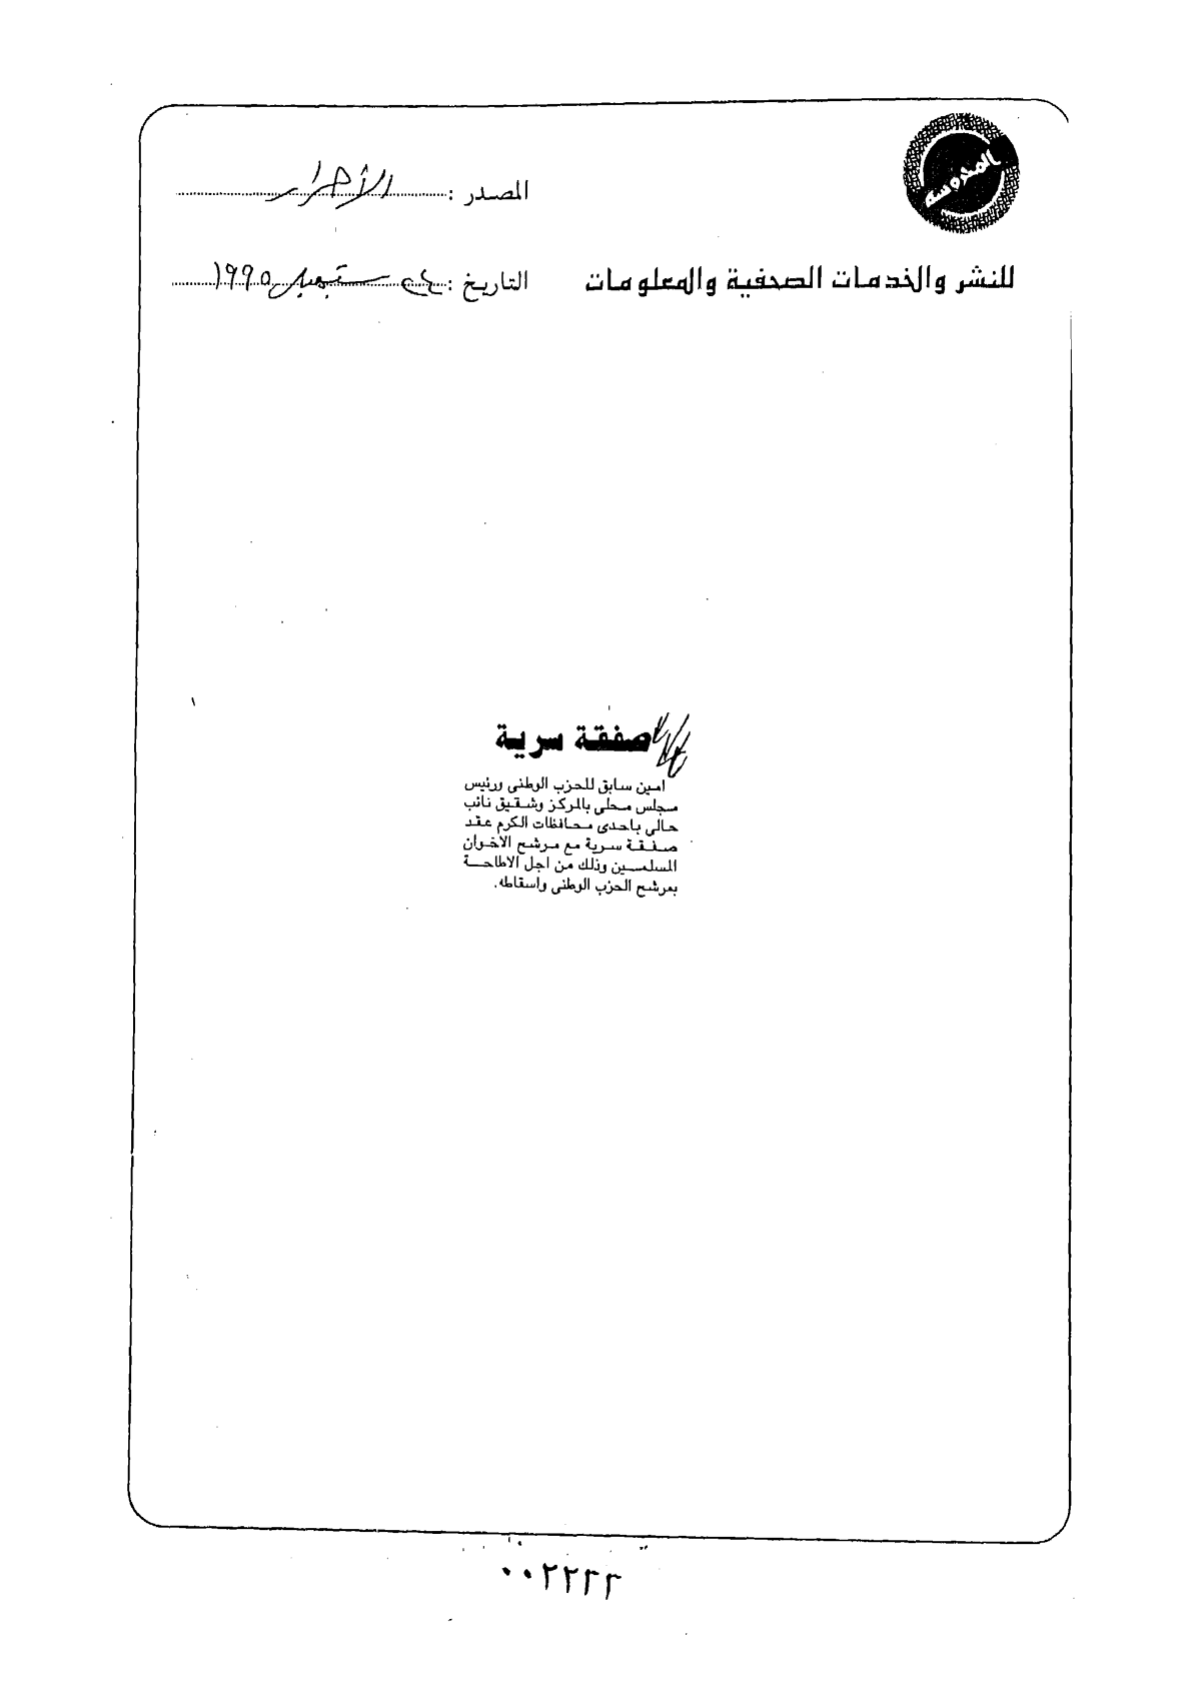 المحروسة
المصدر : الأحرار
للنشر والخدمات الصحفية والمعلومات
التاريخ : ٢٤ سبتمبر ١٩٩٥
صفقة سرية
امين سابق للحزب الوطنى ورئيس
مجلس محلى بالمركز وشقيق نائب
حالى باحدى محافظات الكرم عقد
صفقة سرية مع مرشح الاخوان
المسلمين وذلك من اجل الاطاحة
بمرشح الحزب الوطنى واسقاطه.